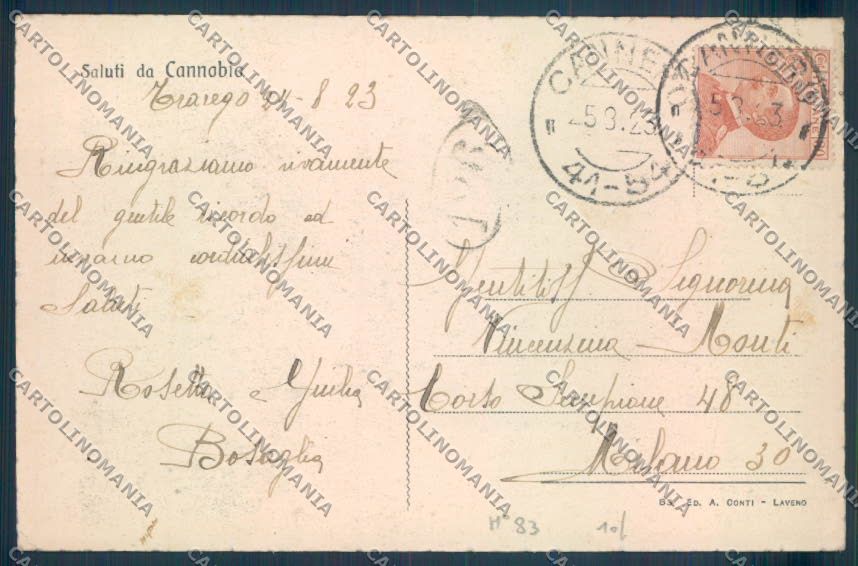 Saluti da Cannobio
Trarego 24-8 23
Ringraziamo vivamente
del gentile ricordo ed
inviamo
Saluti
Rosetta Giulia
Bosaglia
CANNE
5 8.23
41-54
5 8. 23
Gentiliss Signorina
Vincenzina Monti
Corso Sempione 48
Milano 30
ED. A. CONTI - LAVENO
N° 83
10/
CARTOLINOMANIA